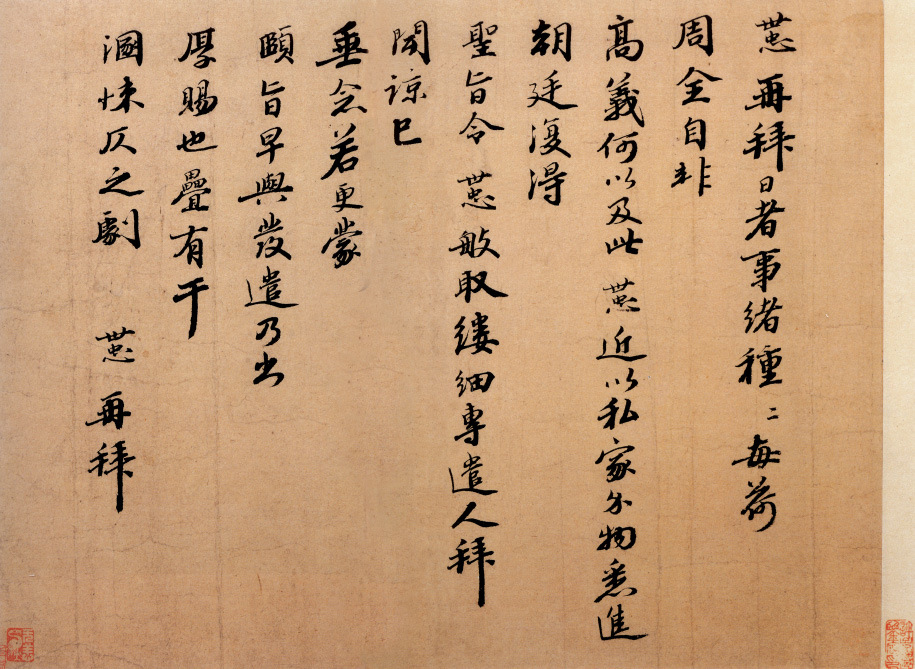 再拜日者事緒種〻每荷
周全自非
高義何以及此近以私家尔物悉進
朝廷復得
聖旨令敏取縷細專遣人拜
聞諒已
垂念若更蒙
頤旨早與發遣乃出
厚賜也疊有干
溷悚仄之劇 再拜